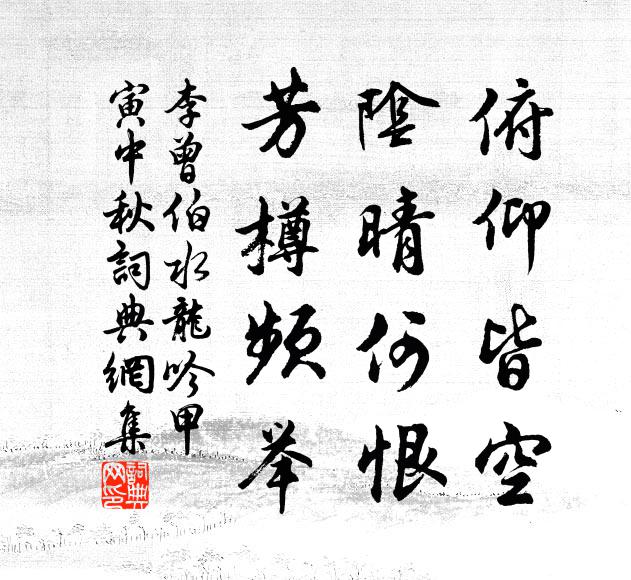 俯仰皆空
陰晴何恨
芳樽頻举
李曾伯水龍吟甲
寅中秋詞典網集
詞典
网印